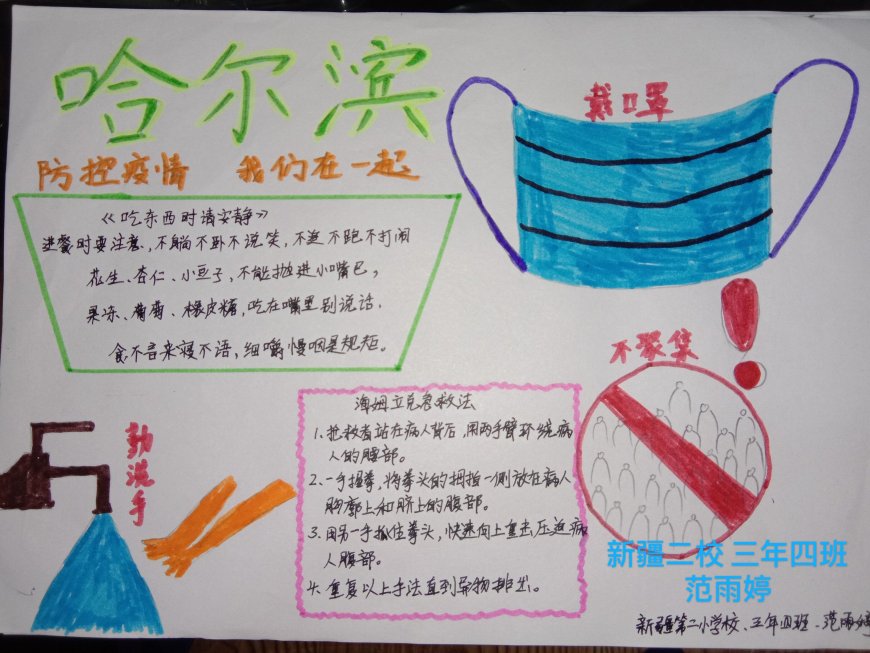 哈尔滨
防控疫情 我们在一起
戴口罩
《吃东西时请安静》
进餐时要注意,不躺不卧不说笑,不追不跑不打闹
花生、杏仁、小豆子,不能抛进小嘴巴,
果冻、葡萄、橡皮糖,吃在嘴里别说话,
食不言来寝不语,细嚼慢咽是规矩。
不聚集
勤洗手
海姆立克急救法
1、抢救者站在病人背后,用两手臂环绕病
人的腰部。
2、一手握拳,将拳头的拇指一侧放在病人
胸廓上和脐上的腹部。
3、用另一手抓住拳头,快速向上重击压迫病
人腹部。
4、重复以上手法直到异物排出。
新疆二校 三年四班
范雨婷
新疆第二小学校、三年四班、范雨婷